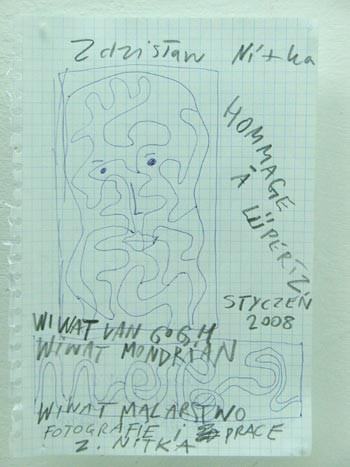 Zdzisław Nitka
HOMMAGE
À
LÜPERTZ
STYCZEŃ
2008
WIWAT VAN GOGH
WIWAT MONDRIAN
WIWAT MALARSTWO
FOTOGRAFIE I PRACE
Z. NITKA